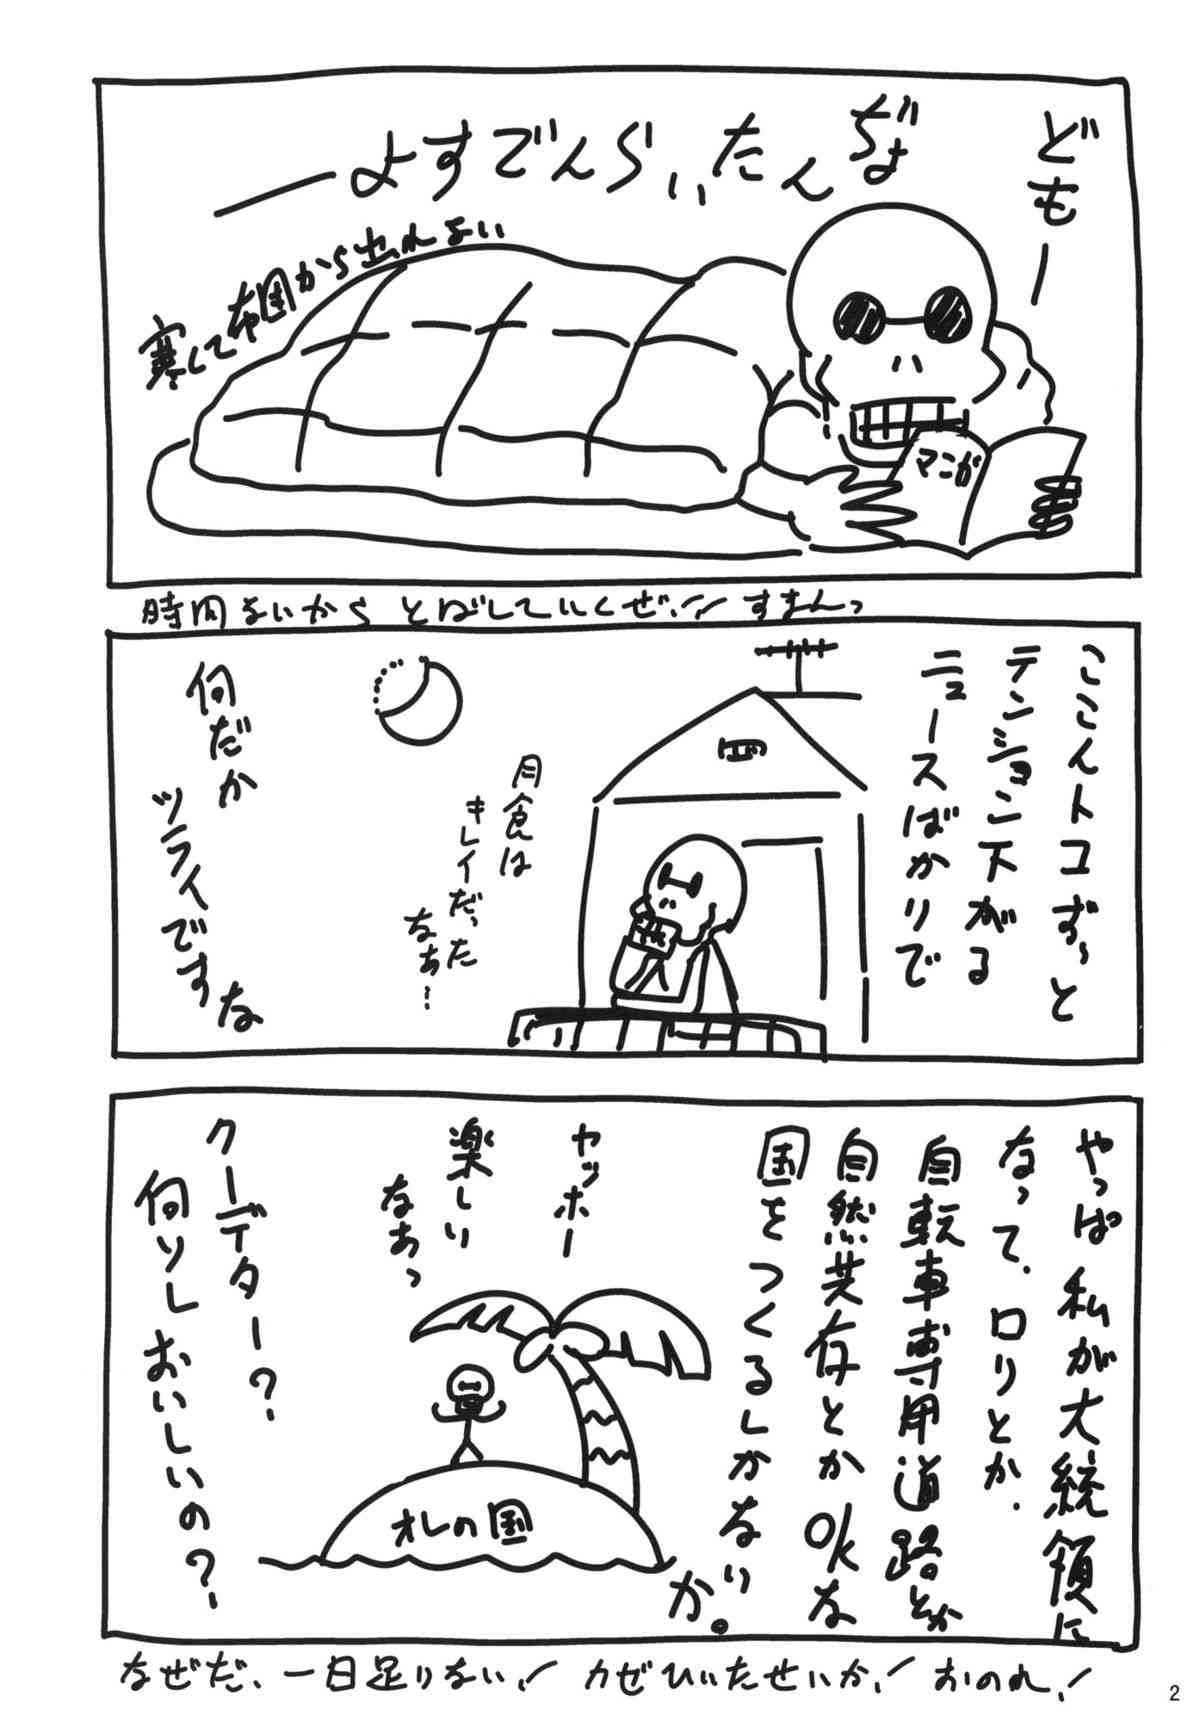 どもー
ぢょ
んたいらんですよ
ー
寒くて布団から出れない
マンガ
時間ないからとばしていくぜ!!すまんっ
ここんトコずっと
テンション下がる
ニュースばかりで
月食は
キレイだった
なぁ…
何だか
ツライです
な
やっぱ私が大統領に
なって、ロリとか、
自転車専用道路とか
自然共存とかOKな
国をつくるしかない
か。
ヤッホー
楽しい
なあっ
オレの国
クーデター?
何ソレおいしいの?
なぜだ、一日足りない!カゼひいたせいか!おのれ!
2